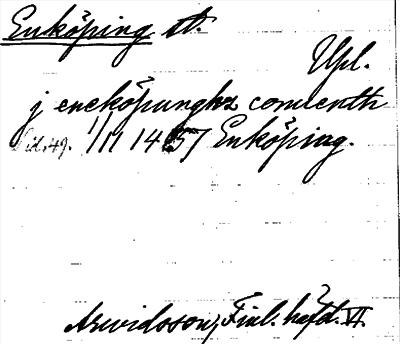 Enköping st.
Upl.
j eneköpunghz conuenth
Sid. 49. 1/11 1457 Enköping.
Arwidsson, Finl. häfd. VI.